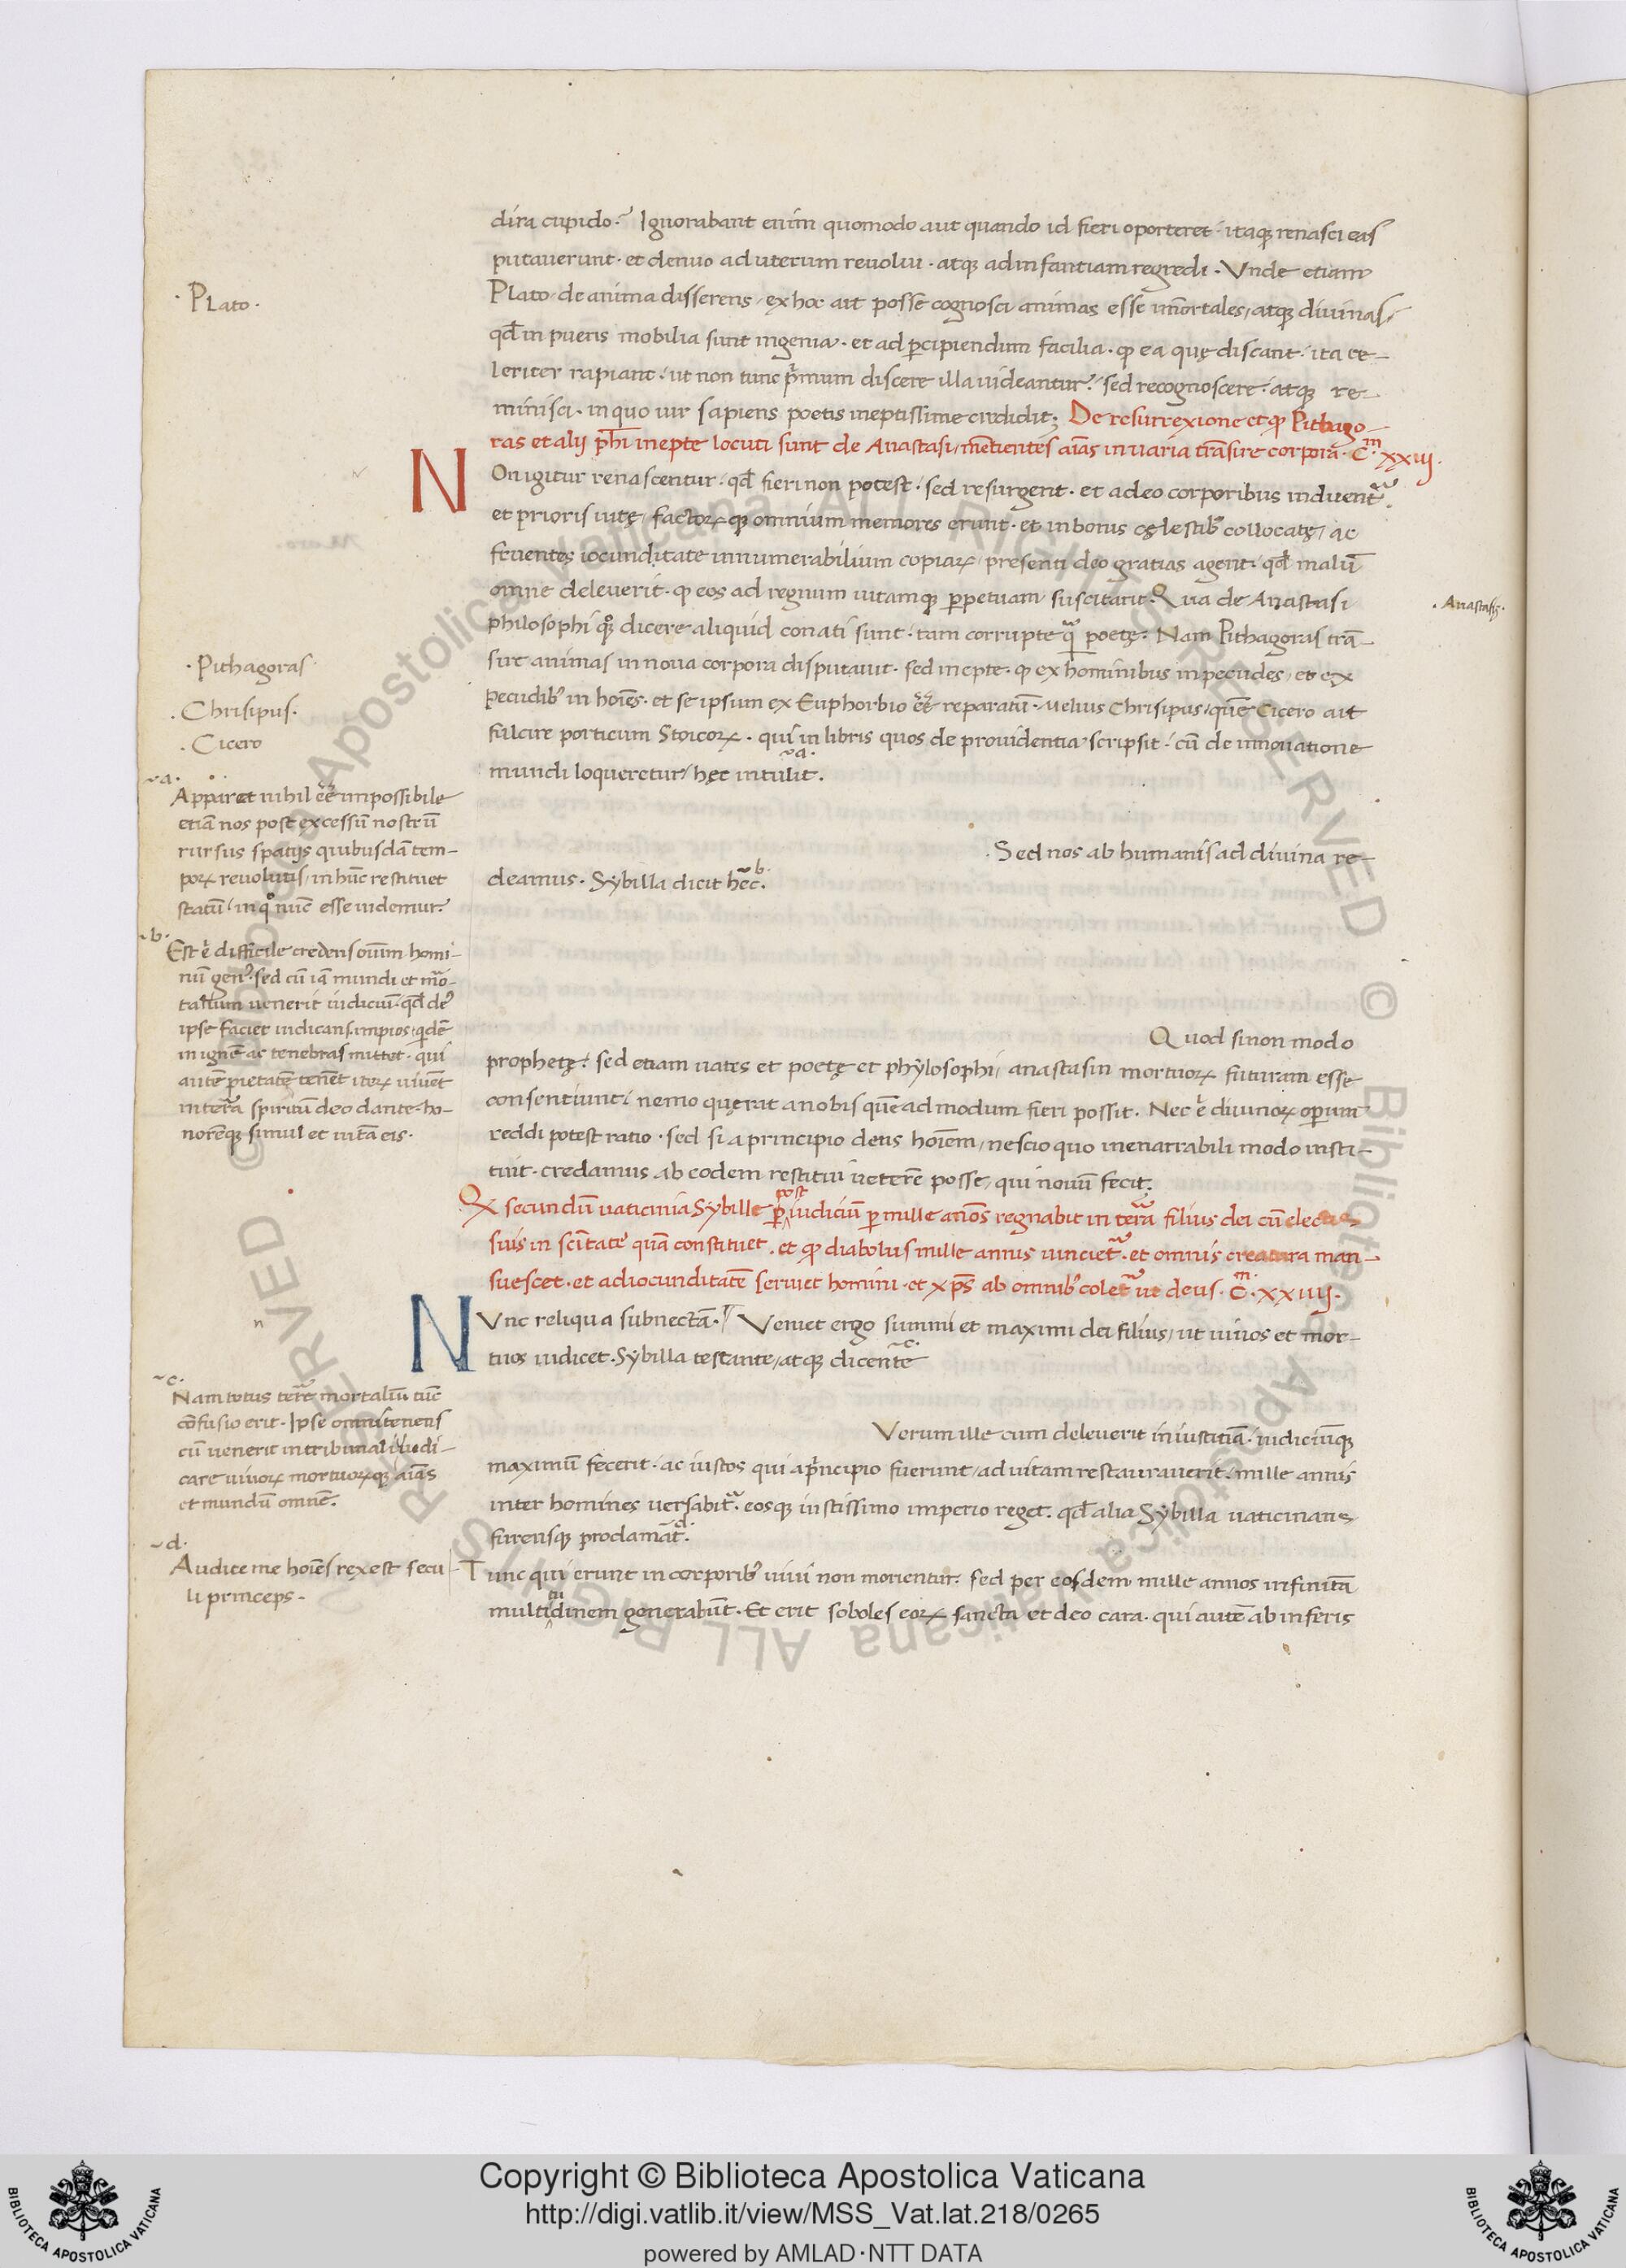 dira cupido. Ignorabant enim quomodo aut quando id fieri oporteret. itaqꝫ renasci eas
putauerunt. et denuo ad uterum reuolui. atqꝫ ad infantiam regredi. Vnde etiam
Plato de anima disserens, ex hoc ait posse cognosci animas esse im̄ortales, atqꝫ diuinas,
qđ in pueris mobilia sunt ingenia. et ad ꝑcipiendum facilia. ꝙ ea quę discant. ita ce-
leriter rapiant. ut non tunc pͥmum discere illa uideantur. sed recognoscere. atqꝫ re-
minisci. in quo uir sapiens poetis ineptissime credidit; De resurrexione et ꝙ Pithago-
ras et alij ph̄i inepte locuti sunt de Anastasi, mētientes aīas in uaria trāsire corpora. C.ᵐ xxiij.
NOn igitur renascentur. qđ fieri non potest. sed resurgent. et a deo corporibus induentᷣ.
et prioris uitę, factoꝝqꝫ omnium memores erunt. et in bonis cęlestibꝰ collocatę, ac
fruentes iocunditate innumerabilium copiaꝝ, presenti deo gratias agent. qđ malū
omne deleuerit. ꝙ eos ad regnum uitamqꝫ ꝑpetuam suscitarit. Qua de Anastasi
philosophi qͦꝫ dicere aliquid conati sunt. tam corrupte qͣꝫ poetę. Nam Pithagoras trā-
sire animas in noua corpora disputauit. sed inepte. ꝙ ex hominibus in pecudes, et ex
pecudibꝰ in hoīes. et se ipsum ex Euphorbio eē̄ reparatū. melius Chrisipus, quē Cicero ait
fulcire porticum Stoicoꝝ. qui in libris quos de prouidentia scripsit. cū de innouatione
mundi loqueretur, hęc intulit. ~a.
Sed nos ab humanis ad diuina re-
deamus. Sÿbilla dicit hęc. ~b.
Quod si non modo
prophetę. sed etiam uates et poetę et phÿlosophi, anastasin mortuoꝝ futuram esse
consentiunt, nemo quęrat a nobis quēadmodum fieri possit. Nec .ē. diuinoꝝ oꝑum
reddi potest ratio. sed si a principio deus hoiēm, nescio quo inenarrabili modo insti-
tuit. credamus ab eodem restitui ueterē posse, qui nouū fecit.
Qꝫ secundū uaticinia Sÿbille post iudiciū ꝑ mille annōs regnabit in terrā filius dei cū electis
suis in scītate quā constituet. et ꝙ diabolus mille annis uincietᷣ. et omnis creatura man-
suescet. et ad iocunditatē seruiet homini. et xp̄s ab omnibꝰ coletᷣ ut deus. C.ᵐ xxiiij.
NVnc reliqua subnectā. Veniet ergo summi et maximi dei filius, ut uiuos et mor-
tuos iudicet. Sÿbilla testante, atqꝫ dicente ~c.
Verum ille cum deleuerit iniustitiā. iudiciūqꝫ
maximū fecerit. ac iustos qui a pͥncipio fuerunt, ad uitam restaurauerit. mille annis
inter homines uersabitᷣ. eosqꝫ iustissimo imperio reget. qđ alia Sÿbilla uaticinans
furensqꝫ proclamat. ~d.
Tunc qui erunt in corporibꝰ uiui non morientur. sed per eosdem mille annos infinitā
multitudinem generabūt. Et erit soboles eoꝝ sancta et deo cara. qui autē ab inferis
.Plato.
.Anastasis.
.Pithagoras.
.Chrisipus.
.Cicero
~a.
Apparet nihil eē̄ impossibile
etiā nos post excessū nostrū
rursus spatijs quibusdā tem-
poꝝ reuolutis, in hūc restituet
statū, in qͦ nūc esse uidemur.
~b.
Est .ē. difficile credens oīum homi-
nū genꝰ. sed cū iā mundi et mor-
talium uenerit iudiciū. qđ deꝰ
ipse faciet iudicans impios, qͥdē
in ignē ac tenebras mittet. qui
autē pietatē tenēt iteꝝ uiuēt
in terrā spiritū deo dante. ho-
norēqꝫ simul et uitā eis.
~c.
Nam totus terrę mortaliū tūc
cōfusio erit. Ipse omnitenens
cū uenerit in tribunali iudi-
care uiuoꝝ mortuoꝝqꝫ aīas
et mundū omnē.
~d.
Audite me hoīes rex est secu
li princeps.
Copyright © Biblioteca Apostolica Vaticana
http://digi.vatlib.it/view/MSS_Vat.lat.218/0265
powered by AMLAD·NTT DATA
BIBLIOTECA APOSTOLICA VATICANA
BIBLIOTECA APOSTOLICA VATICANA
© Biblioteca Apostolica Vaticana ALL RIGHTS RESERVED © Biblioteca Apostolica Vaticana ALL RIGHTS RESERVED